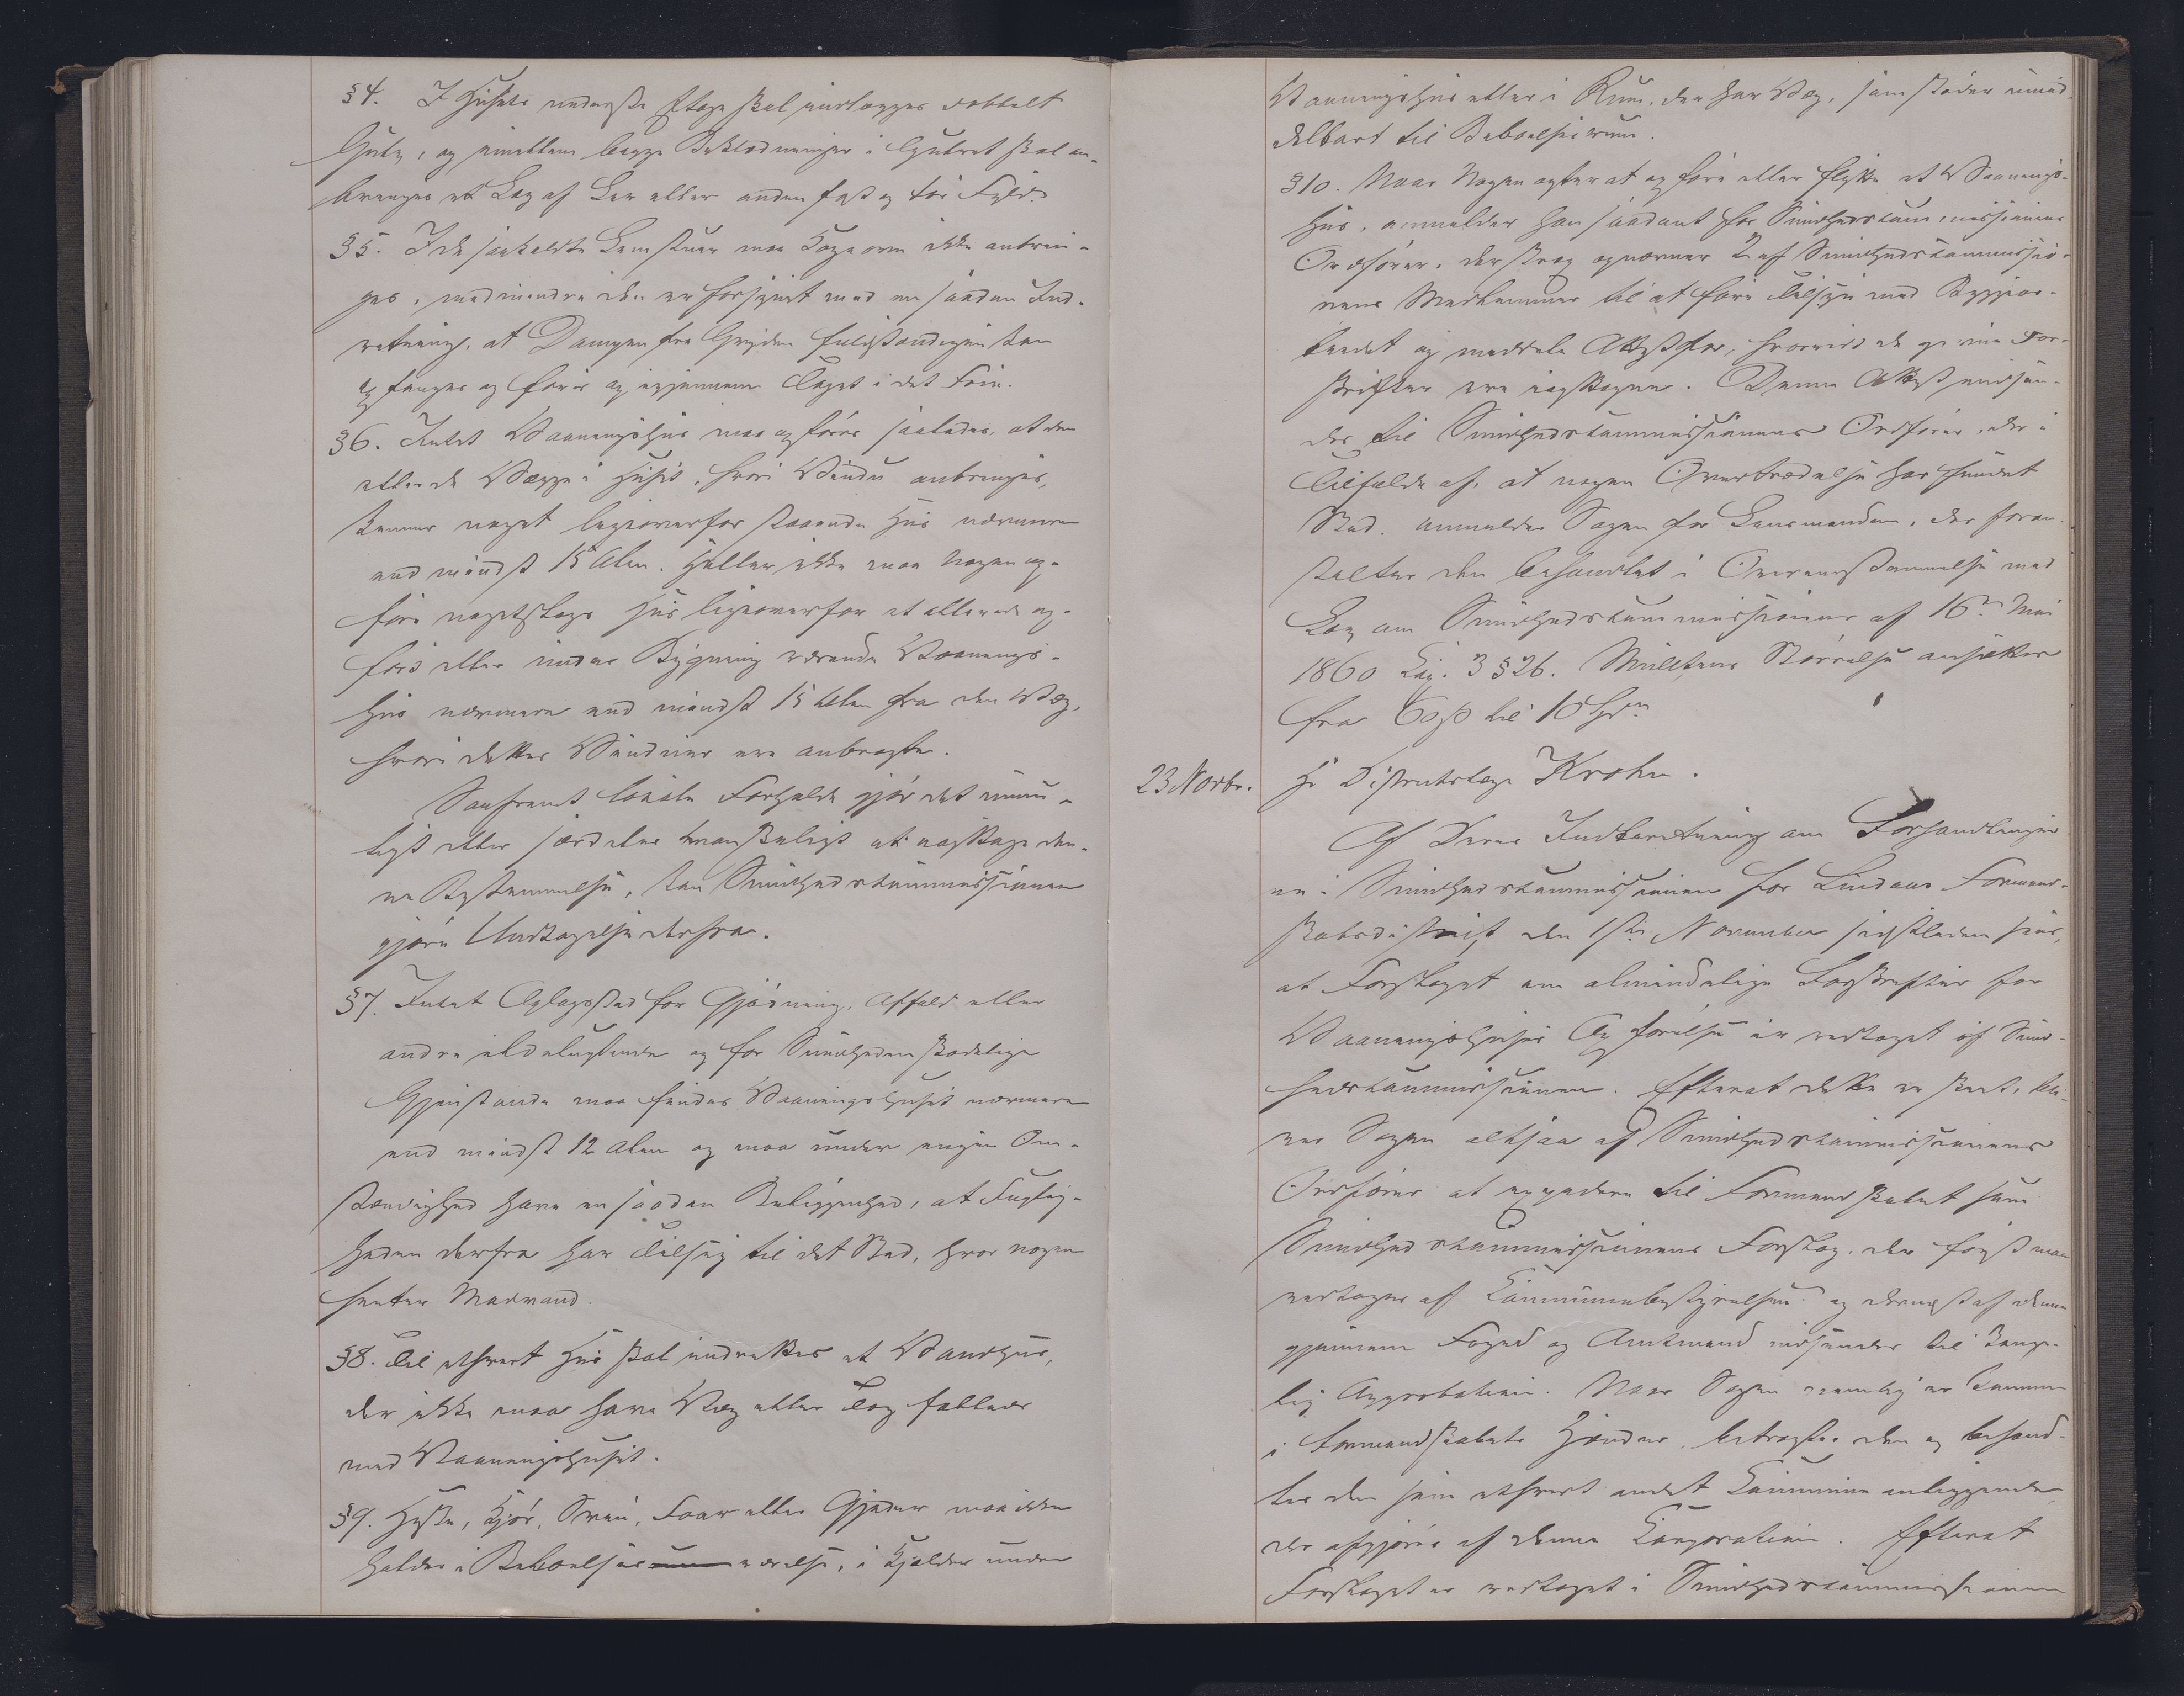 §4. I Husets underste Etage skal indlægges dobbelt
Gulv, og imellem begge Beklædninger i Gulvet skal an-
bringes et Lag af Ler eller anden fast og tør Fyld.
§5. I de saakaldte Lemstuer maa Kogeovn ikke anbrin-
ges, medmindre den er forsynet med en saadan Ind-
retning, at Dampen fra Gryden fuldstændigen kan
opfanges og føres op igjennem Taget i det Frie.
§6. Intet Vaaningshus maa opføres saaledes, at den
eller de Vægge i Huset, hvori Vindu anbringes,
kommer noget ligeoverfor staaende Hus nærmere
end mindst 15 Alen. Heller ikke maa Nogen op-
føre nogetslags Hus ligeoverfor et allerede op-
ført eller under Bygning værende Vaanings-
hus nærmere end mindst 15 Alen fra den Væg,
hvori dettes Vinduer ere anbragte.
Saafremt lokale Forholde gjør det umu-
ligt eller særdeles vanskeligt at iagttage den-
ne Bestemmelse, kan Sundhedskommissionen
gjøre Undtagelse derfra.
§7. Intet Oplagssted for Gjødning, Affald eller
andre ildelugtende og for Sundheden skadelige
Gjenstande maa findes Vaaningshuset nærmere
end mindst 12 Alen og maa under ingen Om-
stændighed have en saadan Beliggenhed, at Fugtig-
heden derfra har Tilsig til det Sted, hvor nogen
henter Madvand.
§8. Til ethvert Hus skal indrettes et Vandhus,
der ikke maa have Væg eller Tag fælleds
med Vaaningshuset.
§9. Heste, Kjør, Sviin, Faar eller Gjeder maa ikke
holdes i Beboelsesværelse, i Kjelder under
Vaaningshus eller i Rum, der har Væg, som støder umid-
delbart til Beboelsesrum.
§10. Naar Nogen agter at opføre eller flytte et Vaanings-
hus, anmelder han saadant for Sundhedskommissionens
Ordfører, der strax opnævner 2 af Sundhedskommissio-
nens Medlemmer til at føre Tilsyn med Byggear-
beidet og meddele Attest for, hvorvidt de givne For-
skrifter ere iagttagne. Denne Attest indsen-
des til Sundhedskommissionens Ordfører, der i
Tilfælde af, at nogen Overtrædelse har fundet
Sted, anmelder Sagen for Lensmanden, der foran-
stalter den behandlet i Overensstemmelse med
Lov om Sundhedskommissioner af 16de Mai
1860 Kap. 3 §26. Mulktens Størrelse ansættes
fra 60 ß til 10 Spd
23 Novbr. Hr Distriktslæge Krohn.
Af Deres Indberetning om Forhandlinger-
ne i Sundhedskommissionen for Lindaas Formand-
skabsdistrikt den 1ste November sidstleden sees,
at Forslaget om almindelige Forskrifter for
Vaaningshuses Opførelse er vedtaget af Sund-
hedskommissionen. Efterat dette er skeet, bli-
ver Sagen altsaa af Sundhedskommissionens
Ordfører at expedere til Formandskabet som
Sundhedskommissionens Forslag, der først maa
vedtages af Kommunebestyrelsen og dernæst af denne
gjennem Foged og Amtmand indsendes til konge-
lig Approbation. Naar Sagen nemlig er kommen
i Formandskabets Hænder, betragtes den og behand-
les den som ethvert andet Kommune anliggende,
der afgjøres af denne Korporation. Efterat
Forslaget er vedtaget i Sundhedskommissionen